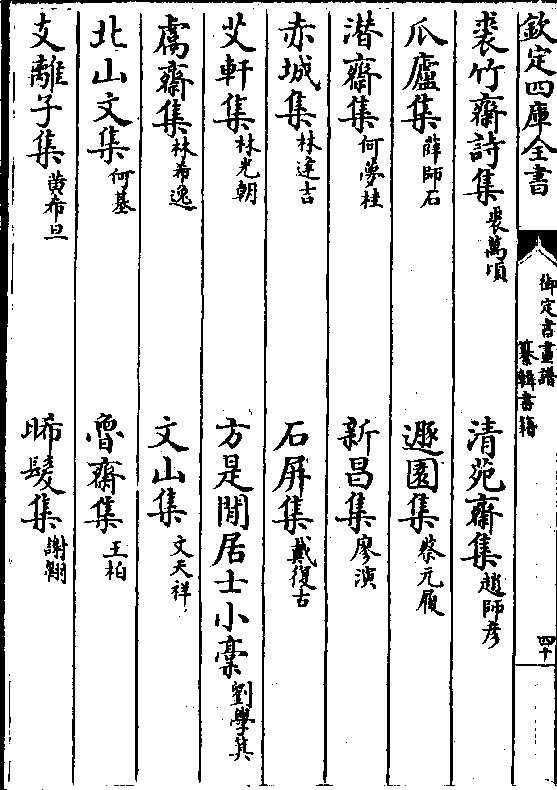 欽定四庫全書
御定書畫譜
纂輯書籍
四十
裘竹齋詩集裘萬頃
清苑齋集趙師彦
瓜廬集薛師石
遯園集蔡元履
潛齋集何夢桂
新昌集廖演
赤城集林逹吉
石屏集戴復古
艾軒集林光朝
方是閒居士小稾劉學箕
鬳齋集林希逸
文山集文天祥
北山文集何基
魯齋集王柏
支離子集黄希旦
晞髪集謝翱